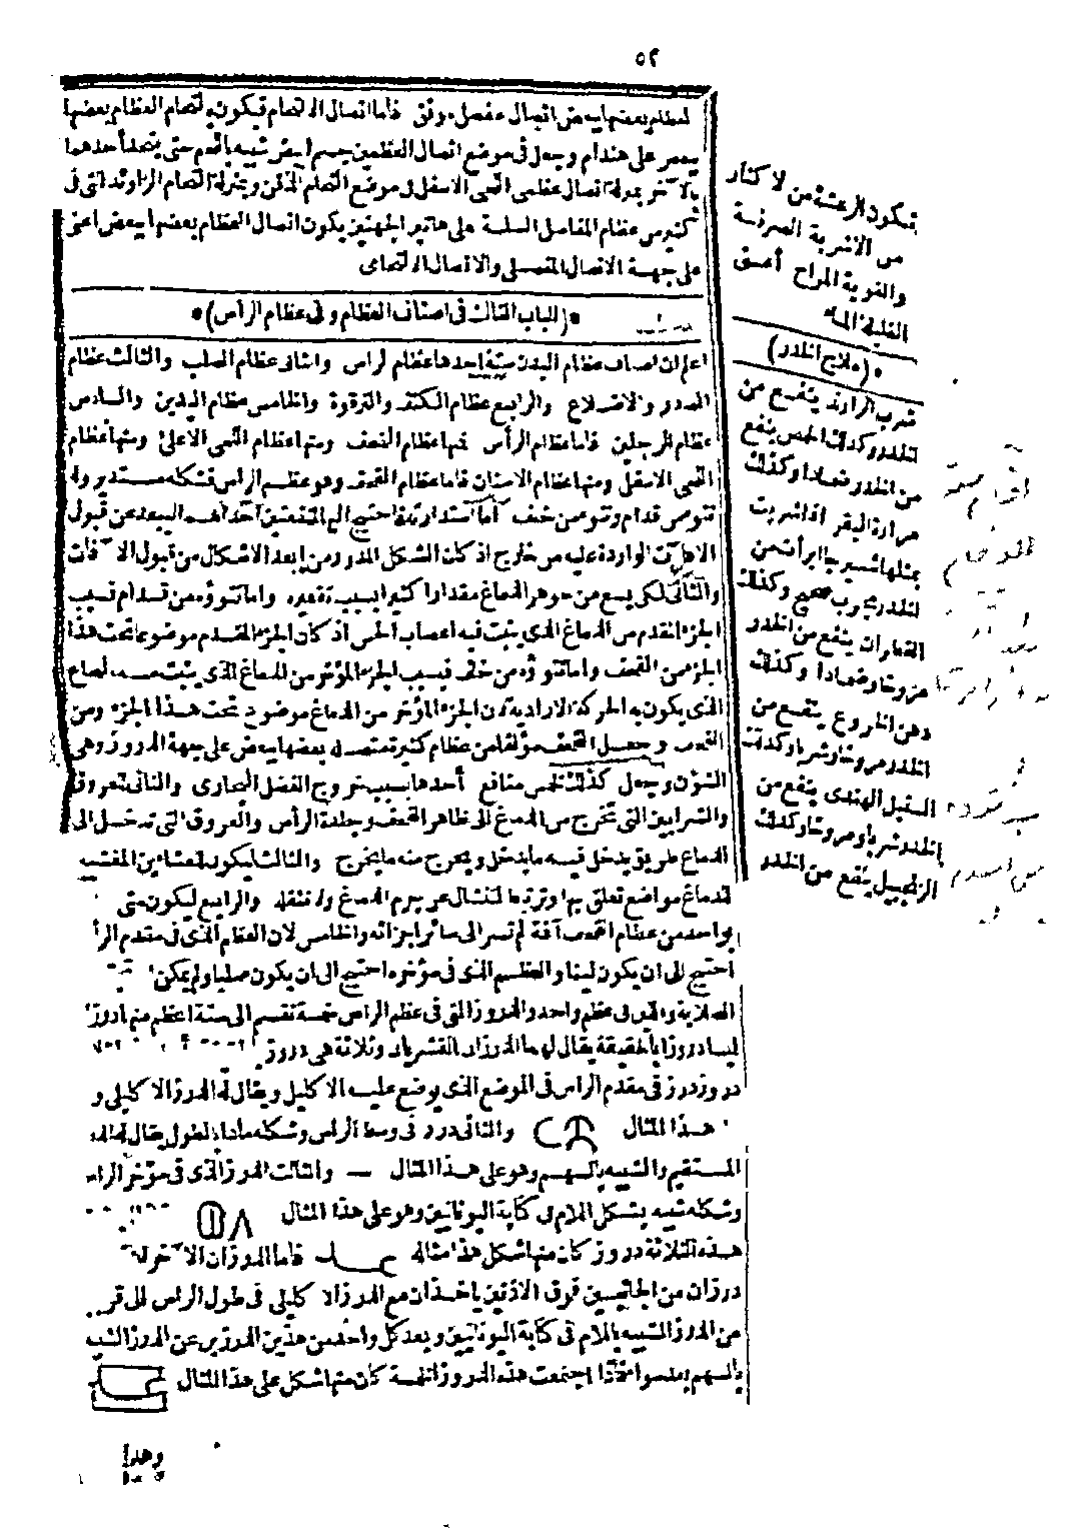 ٥٢
العظام بعضها ببعض اتصال مفصل موثق فاما اتصال الالتحام فيكون بالتحام العظام بعضها
ببعض على هندام وجعل فى موضع اتصال العظمين جسم ابيض شبيه بالدم حتى يتحد أحدهما
بالآخر بمنزلة اتصال عظمى اللحى الاسفل فى موضع التحام الذقن وبمنزلة التحام الزاوئد التى فى
كثير من عظام المفاصل السلسة على هاتين الجهتين يكون اتصال العظام بعضها ببعض اعنى
على جهة الاتصال المفصلى والاتصال الالتحامى
*(الباب الثالث فى اصناف العظام وفى عظام الرأس)*
اعلم ان اصناف عظام البدن ستة احدها عظام الرأس والثانى عظام الصلب والثالث عظام
الصدر والاضلاع والرابع عظام الكتف والترقوة والخامس عظام اليدين والسادس
عظام الرجلين فاما عظام الرأس فمنها عظام القحف ومنها عظام اللحى الاعلى ومنها عظام
اللحى الاسفل ومنها عظام الاسنان فاما عظام القحف وهو عظم الراس فشكله مستدير وله
نتو من قدام ونتو من خلف أما استدارته فاحتيج اليها لمنفعتين أحداهما لبعد عن قبول
الآفات الواردة عليه من خارج اذ كان الشكل المدور من ابعد الاشكال من قبول الآفات
والثانى لكى يسع من جوهر الدماغ مقدارا كثيرا بسبب تقعيره واما نتوؤه من قدام فبسبب
الجزء المقدم من الدماغ الذى ينبت فيه اعصاب الحس اذ كان الجزء المقدم موضوعا تحت هذا
الجزء من القحف واما نتوؤه من خلف فبسبب الجزء المؤخر من الدماغ الذى ينبت منه النخاع
الذى يكون به الحركة الارادية لان الجزء المؤخر من الدماغ موضوع تحت هذا الجزء من
القحف وجعل القحف مؤلفا من عظام كثيرة متصلة بعضها ببعض على جهة الدروز وهى
الشؤن وجعل كذلك لخمس منافع أحدها بسبب خروج الفضل البخارى والثانى لعروق
والشرايين التى تخرج من الدماغ الى ظاهر القحف وجلدة الرأس والعروق التى تدخل الى
الدماغ طريق يدخل فيه ما يدخل ويخرج منه ما يخرج والثالث ليكون للغشاءين المغشيه
للدماغ مواضع تعلق بها وترتبط لتنشال عن جرم الدماغ ولا تثقله والرابع ليكون متى
بواحد من عظام القحف آفة لم تسر الى سائر اجزائه والخامس لان العظم الذى فى مقدم الرأ
احتيج الى ان يكون لينا والعظم الذى فى مؤخره احتيج الى ان يكون صلبا ولم يمكن
الصلابة واللين فى عظم واحد والدروز التى فى عظم الراس خمسة تقسم الى ستة اعظم منها دروز
ليسا دروزا بالحقيقة يقال لهما الدرزان القشريان وثلاثة هى دروز
دروز درز فى مقدم الراس فى الموضع الذى يوضع عليه الاكليل ويقال له الدرز الاكليلى و
هذا المثال والثانى درز فى وسط الراس وشكله مادا بالطول يقال له الد
المستقيم والشبيه بالسهم وهو على هذا المثال — والثالث الدرز الذى فى مؤخر الراس
وشكله شبيه بشكل اللام فى كتابة اليونانيين وهو على هذا المثال
هذه الثلاثة دروز كان منها شكل هذا مثاله فاما الدرزان الآخران
درزان من الجانبين فوق الاذنين ياخذان مع الدرز الاكليلى فى طول الراس الى قر
من الدرز الشبيه باللام فى كتابة اليونانيين وبعد كل واحد من هذين الدرزين عن الدرز الشبيه
بالسهم بعد سواء فاذا اجتمعت هذه الدروز الخمسة كان منها شكل على هذا المثال
وهذا
فيكون الرعشة من الاكثار
من الاشربة الصرفة
والقوية المزاج أعنى
القليلة الماء
*(علاج الخدر)*
شرب الراوند ينفع من
الخدر وكذلك الحمص ينفع
من الخدر ضمادا وكذلك
مرارة البقر اذا شربت
الخدر مجرب صحيح وكذلك
ينفع من الخدر
مروخا وضمادا وكذلك
دهن الخروع ينفع من
الخدر مروخا وشربا وكذلك
السنبل الهندى ينفع من
الخدر شربا ومروخا وكذلك
الزنجبيل ينفع من الخدر